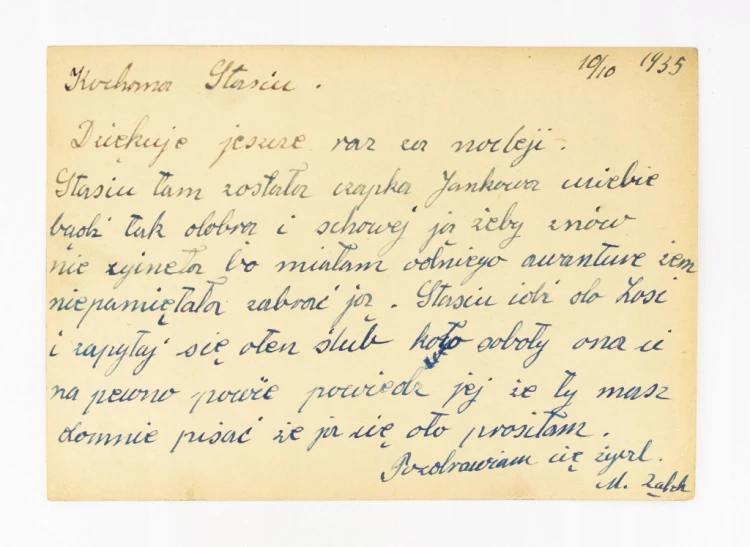 10/10 1935
Kochana Stasiu.
Dziękuje jeszcze raz za nocleji.
Stasiu tam została czapka Jankowa uciebie
bądź tak dobra i schowej ją żeby znów
nie zginęła bo miałam odniego awanture żem
niepamiętała zabrać ją. Stasiu idź do Zosi
i zapytaj się oten ślub koło soboty ona ci
na pewno powie powiedz jej że ty masz
domnie pisać że ja cię oto prosiłam.
Pozdrawiam cię życzl.
M.